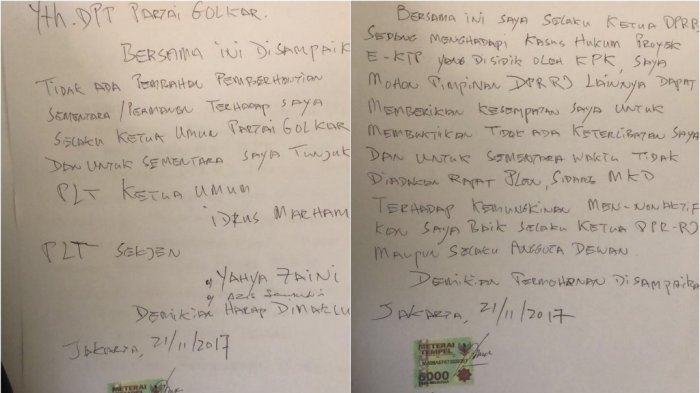 Yth. DPT PARTAI GOLKAR.
BERSAMA INI DISAMPAIK
TIDAK ADA PEMBAHAN PEMBERHENTIAN
SEMENTARA / PERMANEN TERHADAP SAYA
SELAKU KETUA UMUM PARTAI GOLKAR
DAN UNTUK SEMENTARA SAYA TUNJUK
PLT KETUA UMUM
IDRUS MARHAM
PLT SEKJEN
YAHYA ZAINI
DEMIKIAN HARAP DIMAKLU
JAKARTA, 21/11/2017
METERAI
TEMPEL
BERSAMA INI SAYA SELAKU KETUA DPRR
SEDANG MENGHADAPI KASUS HUKUM PROYEK
E-KTP YANG DISIDIK OLEH KPK, SAYA
MOHON PIMPINAN DPRRI LAINNYA DAPAT
MEMBERIKAN KESEMPATAN SAYA UNTUK
MEMBUKTIKAN TIDAK ADA KETERLIBATAN SAYA
DAN UNTUK SEMENTARA WAKTU TIDAK
DIADAKAN RAPAT PLENO, SIDANG MKD
TERHADAP KEMUNGKINAN MEN-NONAKTIF
KAN SAYA BAIK SELAKU KETUA DPR-RI
MAUPUN SELAKU ANGGOTA DEWAN.
DEMIKIAN PERMOHONAN DISAMPAIKA
JAKARTA, 21/11/2017
METERAI
TEMPEL
6000